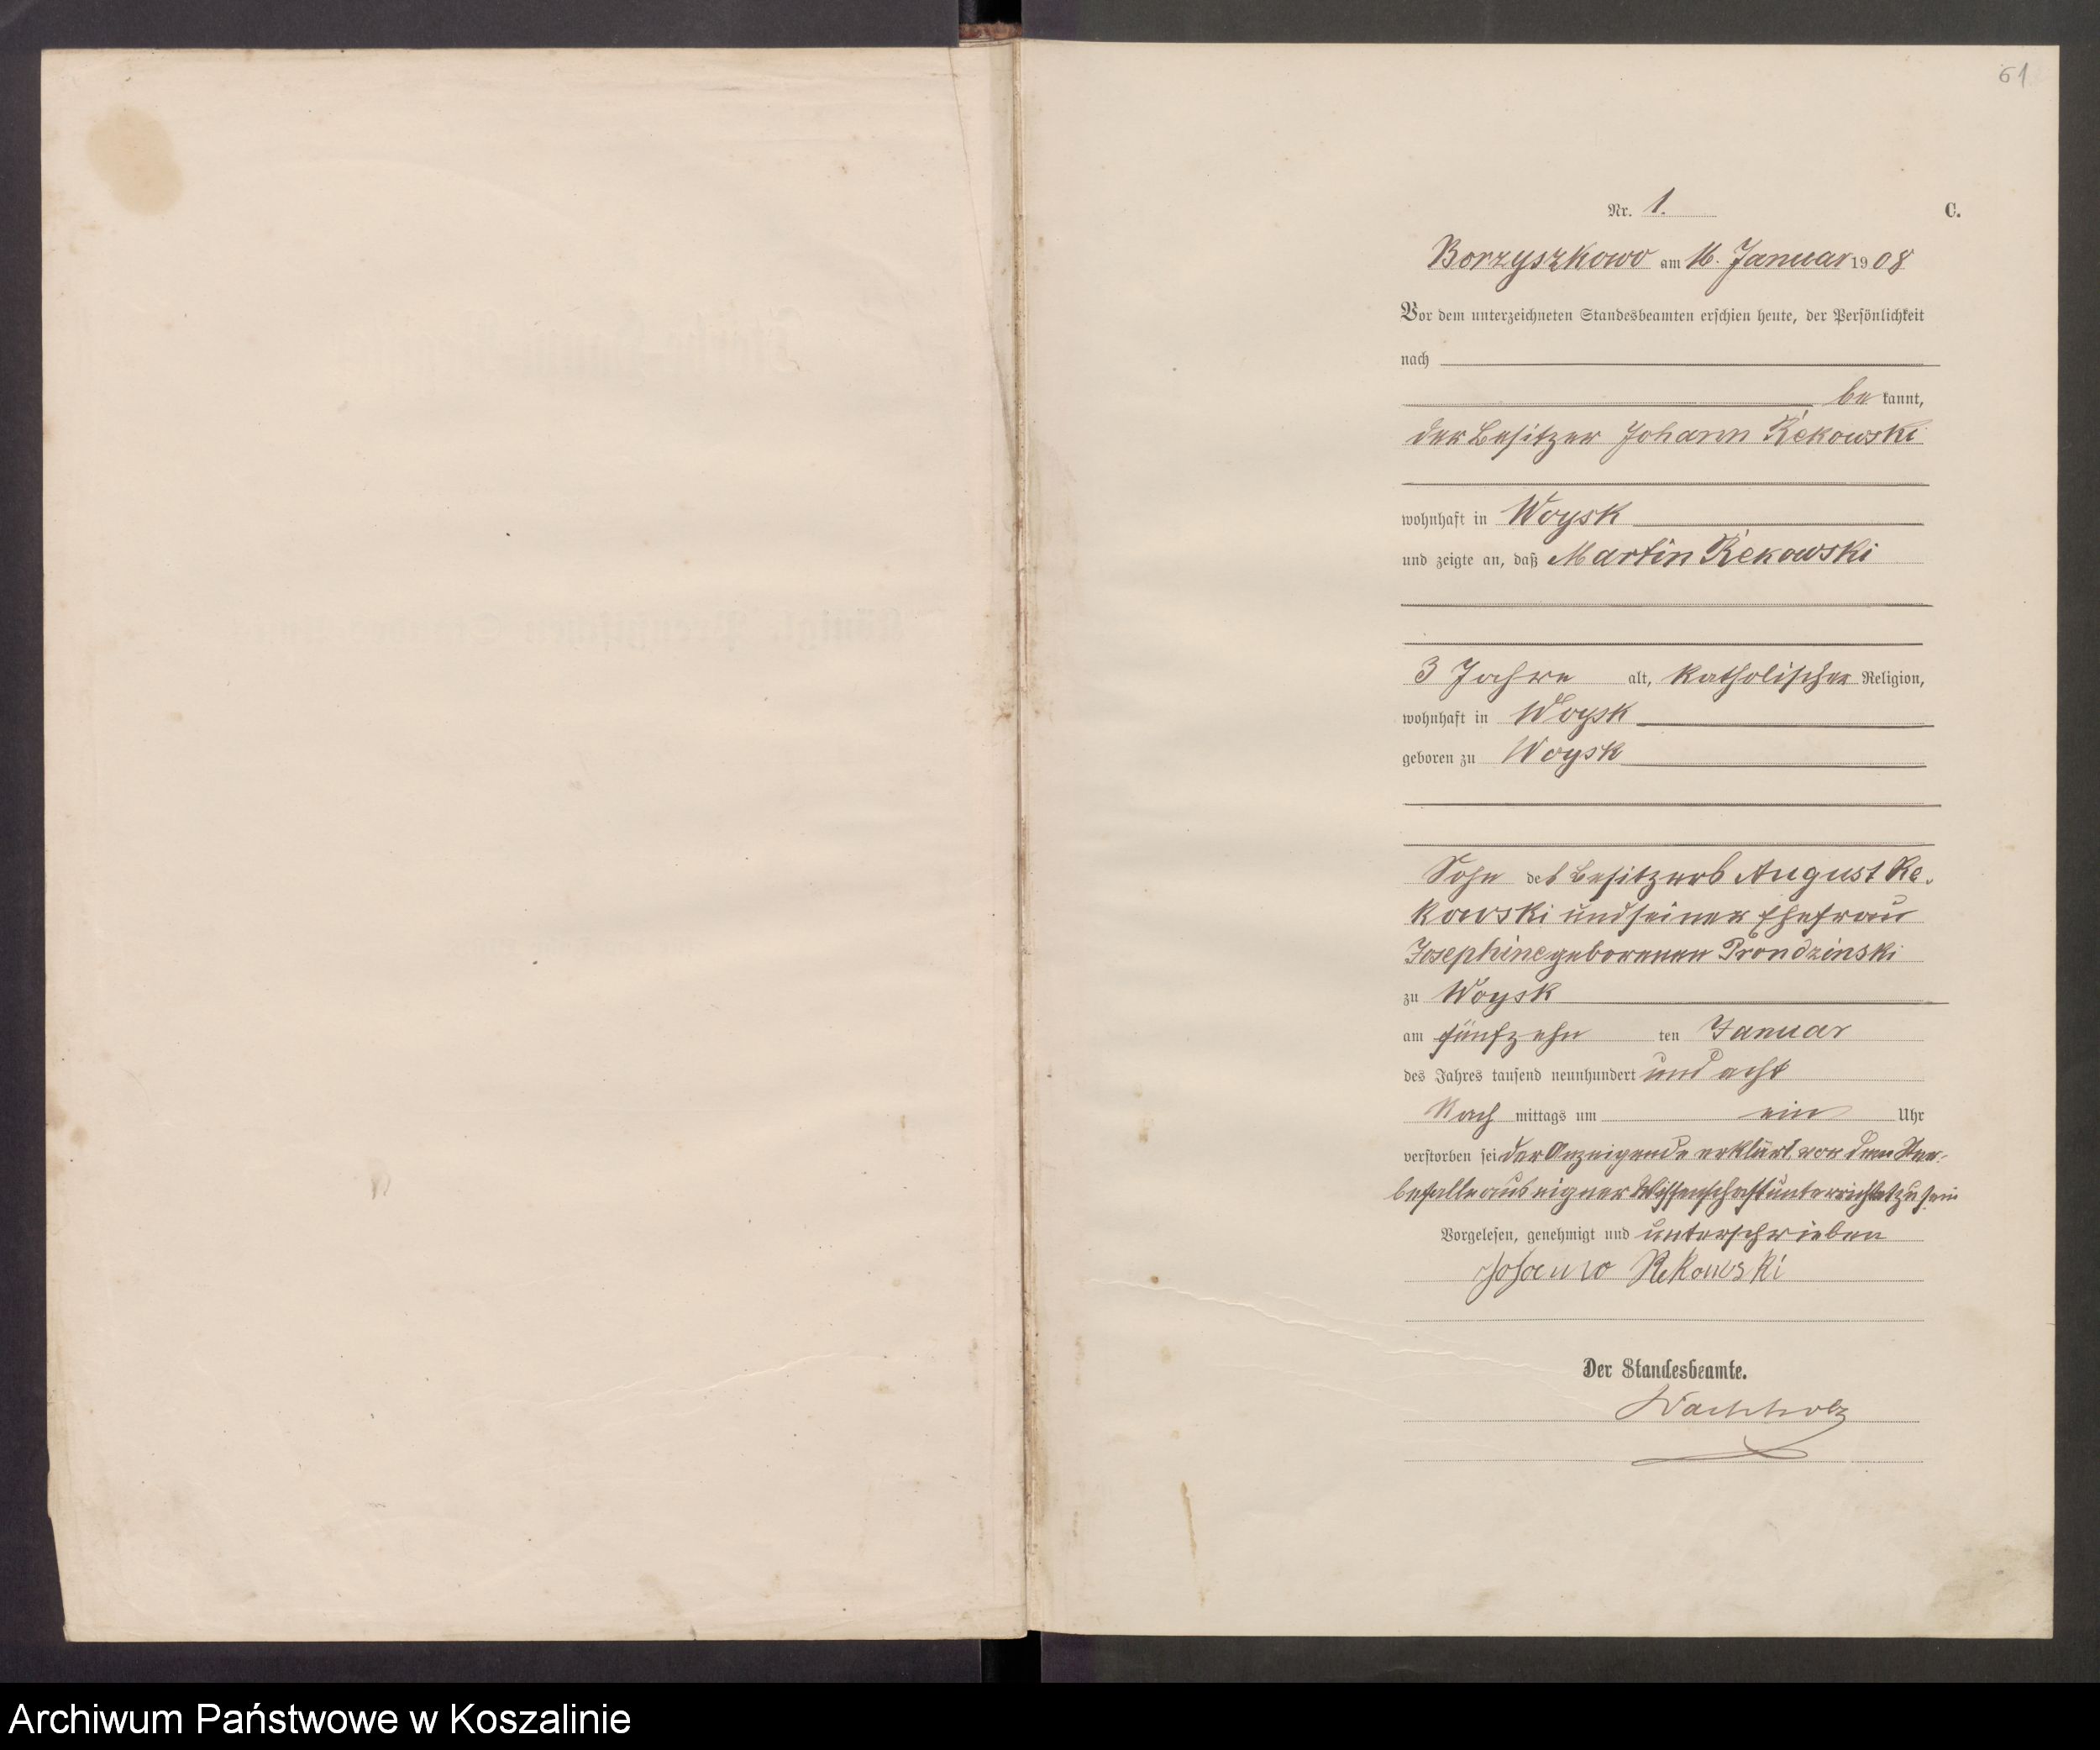 61
Nr. 1. C.
Borzyszkowo am 16. Januar 1908
Vor dem unterzeichneten Standesbeamten erschien heute, der Persönlichkeit
nach
be kannt,
der Besitzer Johann Rekowski
wohnhaft in Woysk
und zeigte an, daß Martin Rekowski
3 Jahre alt, katholischer Religion,
wohnhaft in Woysk
geboren zu Woysk
Sohn des Besitzers August Re-
kowski und seiner Ehefrau
Josephine geborenen Prondzinski
zu Woysk
am fünfzehn ten Januar
des Jahres tausend neunhundert und acht
Nach mittags um ein Uhr
verstorben sei der Anzeigende erklärt, von dem Ster-
befalle aus eigner Wissenschaft unterrichtet zu sein
Vorgelesen, genehmigt und unterschrieben
Rekowski
Der Standesbeamte.
Wachholz
Archiwum Państwowe w Koszalinie